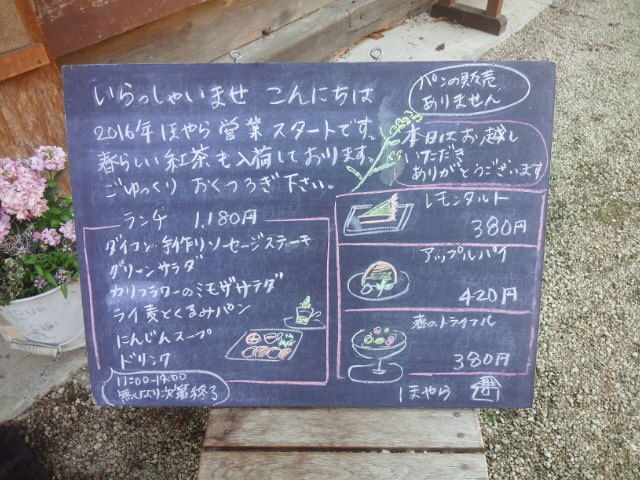 いらっしゃいませ こんにちは
2016年 ほやら 営業スタートです。
春らしい紅茶も入荷しております。
ごゆっくり おくつろぎ下さい。
パンの販売
ありません
本日はお越し
いただき
ありがとうございます
ランチ 1,180円
ダイコン 手作りソーセージステーキ
グリーンサラダ
カリフラワーのミモザサラダ
ライ麦とくるみパン
にんじんスープ
ドリンク
11:00-14:00
無くなり次第終了
レモンタルト
380円
アップルパイ
420円
春のトライフル
380円
ほやら